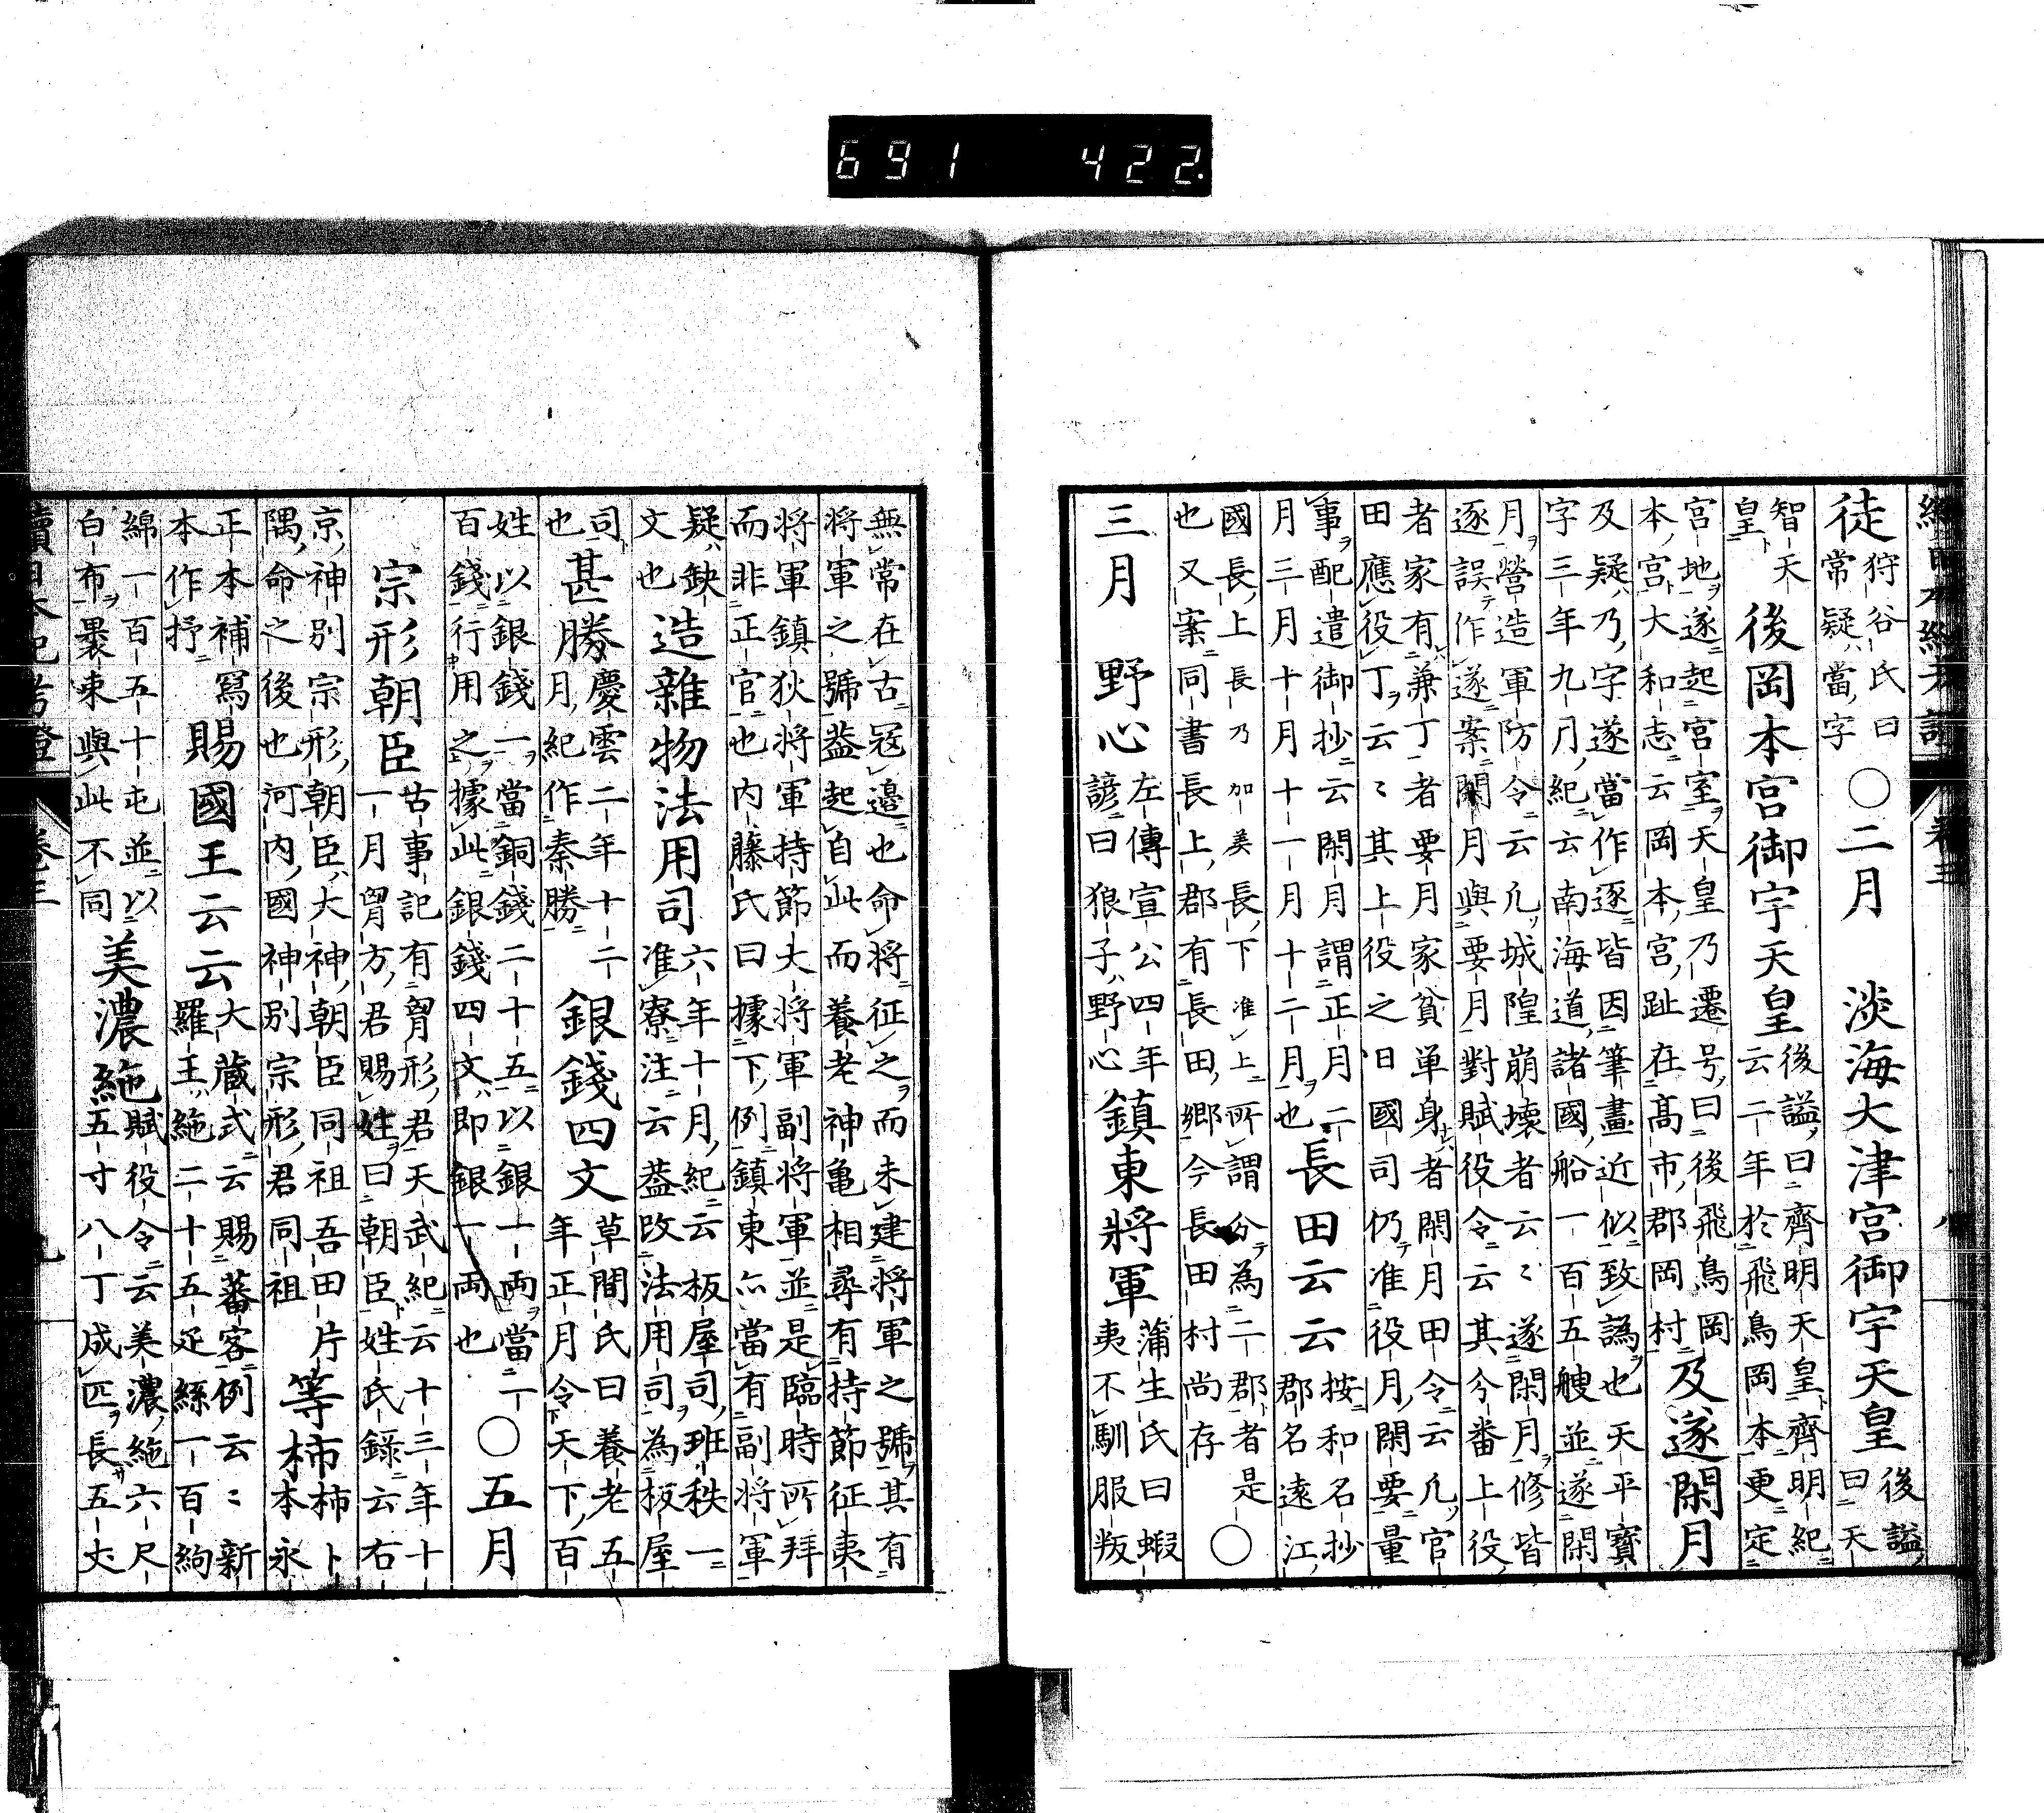 徒
狩谷氏曰
常疑當字
○二月　淡海大津宮御宇天皇
後謚
曰天
智天
皇
後岡本宮御宇天皇
後謚曰齊明天皇齊明紀
云二年於飛鳥岡本更定
宮地遂起宮室天皇乃遷号曰後飛鳥岡
本宮大和志云岡本宮趾在高市郡岡村
及遂閑月
及疑乃字遂當作逐皆因筆畫近似致譌也天平寶
字三年九月紀云南海道諸國船一百五艘並遂閑
月營造軍防令云凡城隍崩壞者云〻遂閑月修皆
逐誤作遂案閑月與要月對賦役令云其分番上役
者家有兼丁者要月家貧単身者閑月田令云凡官
田應役丁云〻其上役之日國司仍准役月閑要量
事配遣御抄云閑月謂正月二
月三月十月十一月十二月也
長田云云
按和名抄
郡名遠江
國長上長乃加美長下准上所謂分為二郡者是
也又案同書長上郡有長田鄉今長田村尚存
○
三月　野心
左傳宣公四年
諺曰狼子野心
鎮東將軍
蒲生氏曰蝦
夷不馴服叛
無常在古冦邉也命将征之而未建将軍之號其有
将軍之號葢起自此而養老神亀相尋有持節征夷
将軍鎮狄将軍持節大将軍副将軍並是臨時所拜
而非正官也内藤氏曰據下例鎮東亦當有副将軍
疑缺
文也
造雜物法用司
六年十月紀云板屋司班秩一
准寮注云葢改法用司為板屋
司
也
甚勝
慶雲二年十二
月紀作秦勝
銀錢四文
草間氏曰養老五
年正月令天下百
姓以銀錢一當銅錢二十五以銀一兩當一
百錢行用之據此銀錢四文即銀一両也
○五月
宗形朝臣
古事記有胷形君天武紀云十三年十
一月胷方君賜姓曰朝臣姓氏錄云右
京神別宗形朝臣大神朝臣同祖吾田片
隅命之後也河内國神別宗形君同祖
等柿
柿卜
本永
正本補寫
本作抒
賜國王云云
大藏式云賜蕃客例云〻新
羅王絁二十五疋絲一百絇
綿一百五十屯並以
白布褁束與此不同
美濃絁
賦役令云美濃絁六尺
五寸八丁成匹長五丈
續日本紀考證　卷三
691　422